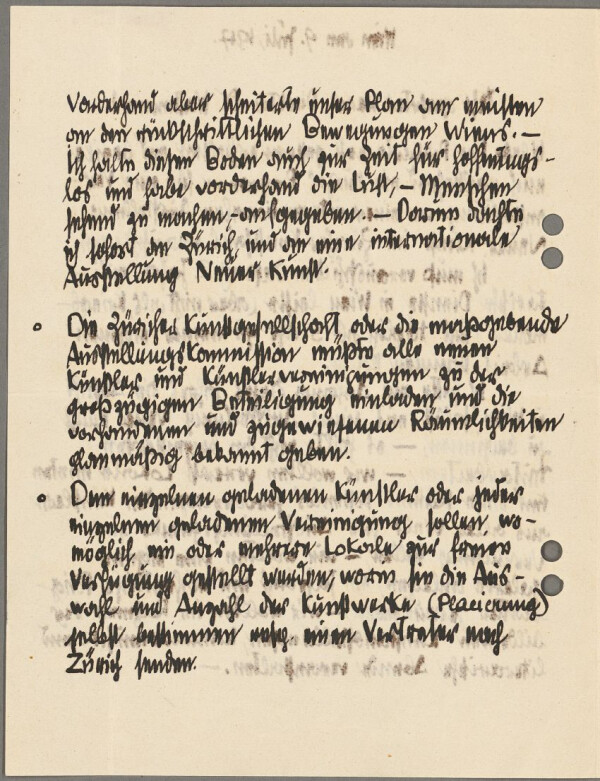 Wien am 9. Juli 1917
Vorderhand aber scheiterte unser Plan am meisten
an den rückschrittlichen Bewegungen Wiens. —
ich halte diesen Boden auch zur Zeit für hoffnungs-
los und habe vorderhand die Lust, – Menschen
sehend zu machen – aufgegeben. — Darum dachte
ich sofort an Zürich, und an eine internationale
Ausstellung Neuer Kunst.
o Die Züricher Kunstgesellschaft, oder die maßgebende
Ausstellungskommission müßte alle neuen
Künstler und Künstlervereinigungen zu der
großzügigen Beteiligung einladen und die
vorhandenen und zugewiesenen Räumlichkeiten
planmäßig bekannt geben.
o Dem einzelnen geladenen Künstler oder jeder
einzelnen geladenen Vereinigung sollen, wo-
möglich ein oder mehrere Lokale zur freien
Verfügung gestellt werden, worin sie die Aus-
wahl und Anzahl der Kunstwerke (Placierung)
selbst bestimmen resp. einen Vertreter nach
Zürich senden.